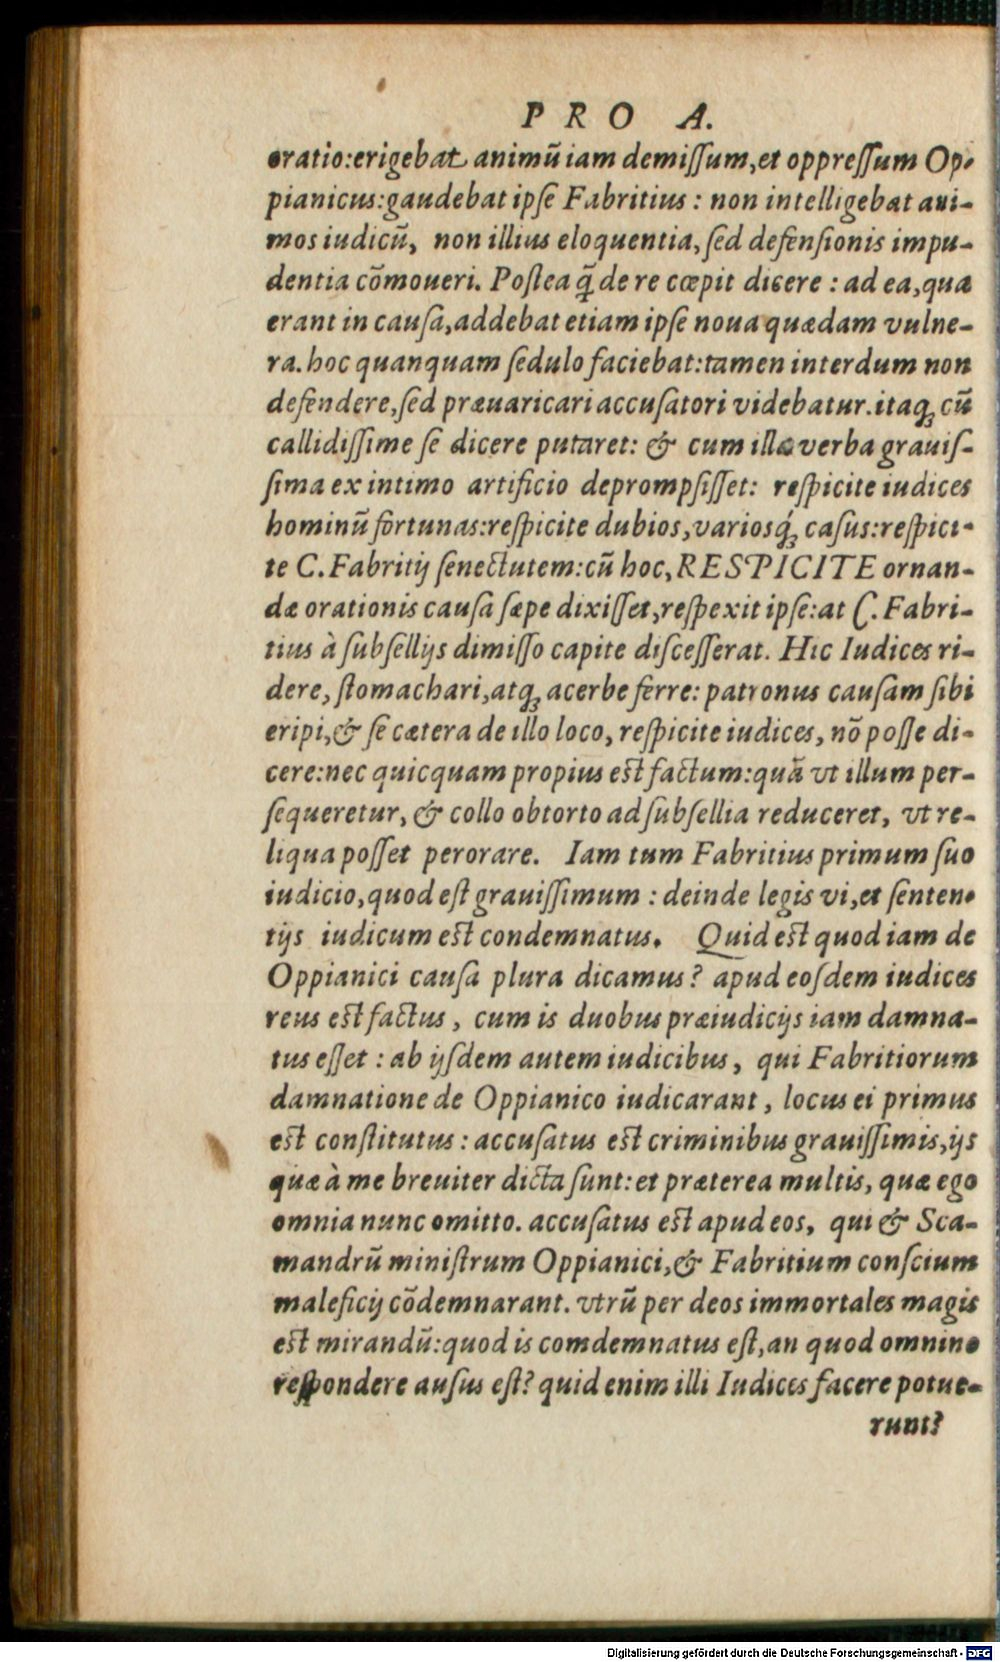 PRO A.
oratio:erigebat animũ iam demiſſum,et oppreſſum Op-
pianicus:gaudebat ipſe Fabritius: non intelligebat aui-
mos iudicũ, non illius eloquentia, ſed defenſionis impu-
dentia cõmoueri. Poſtea q̃ de re cœpit dicere: ad ea,quæ
erant in cauſa,addebat etiam ipſe noua quædam vulne-
ra. hoc quanquam ſedulo faciebat:tamen interdum non
defendere,ſed præuaricari accuſatori videbatur.itaq; cũ
callidiſſime ſe dicere putaret: & cum illa verba grauiſ-
ſima ex intimo artificio deprompſiſſet: reſpicite iudices
hominũ fortunas:reſpicite dubios,variosq́; caſus:reſpici-
te C.Fabritij ſenectutem:cũ hoc, RESPICITE ornan-
dæ orationis cauſa ſæpe dixiſſet,reſpexit ipſe:at C.Fabri-
tius à ſubſellijs dimiſſo capite diſceſſerat. Hic Iudices ri-
dere, ſtomachari,atq; acerbe ferre: patronus cauſam ſibi
eripi,& ſe cætera de illo loco, reſpicite iudices, nõ poſſe di-
cere:nec quicquam propius eſt factum:quã vt illum per-
ſequeretur, & collo obtorto ad ſubſellia reduceret, vt re-
liqua poſſet perorare. Iam tum Fabritius primum ſuo
iudicio,quod eſt grauiſſimum: deinde legis vi,et ſenten-
tijs iudicum eſt condemnatus. Quid eſt quod iam de
Oppianici cauſa plura dicamus? apud eoſdem iudices
reus eſt factus, cum is duobus præiudicijs iam damna-
tus eſſet: ab ijſdem autem iudicibus, qui Fabritiorum
damnatione de Oppianico iudicarant, locus ei primus
eſt conſtitutus: accuſatus eſt criminibus grauiſſimis,ijs
quæ à me breuiter dicta ſunt:et præterea multis, quæ ego
omnia nunc omitto. accuſatus eſt apud eos, qui & Sca-
mandrũ miniſtrum Oppianici,& Fabritium conſcium
maleficij cõdemnarant. vtrũ per deos immortales magis
eſt mirandũ:quod is comdemnatus eſt,an quod omnino
reſpondere auſus eſt? quid enim illi Iudices facere potue-
runt?
Digitalisierung gefördert durch die Deutsche Forschungsgemeinschaft - DFG